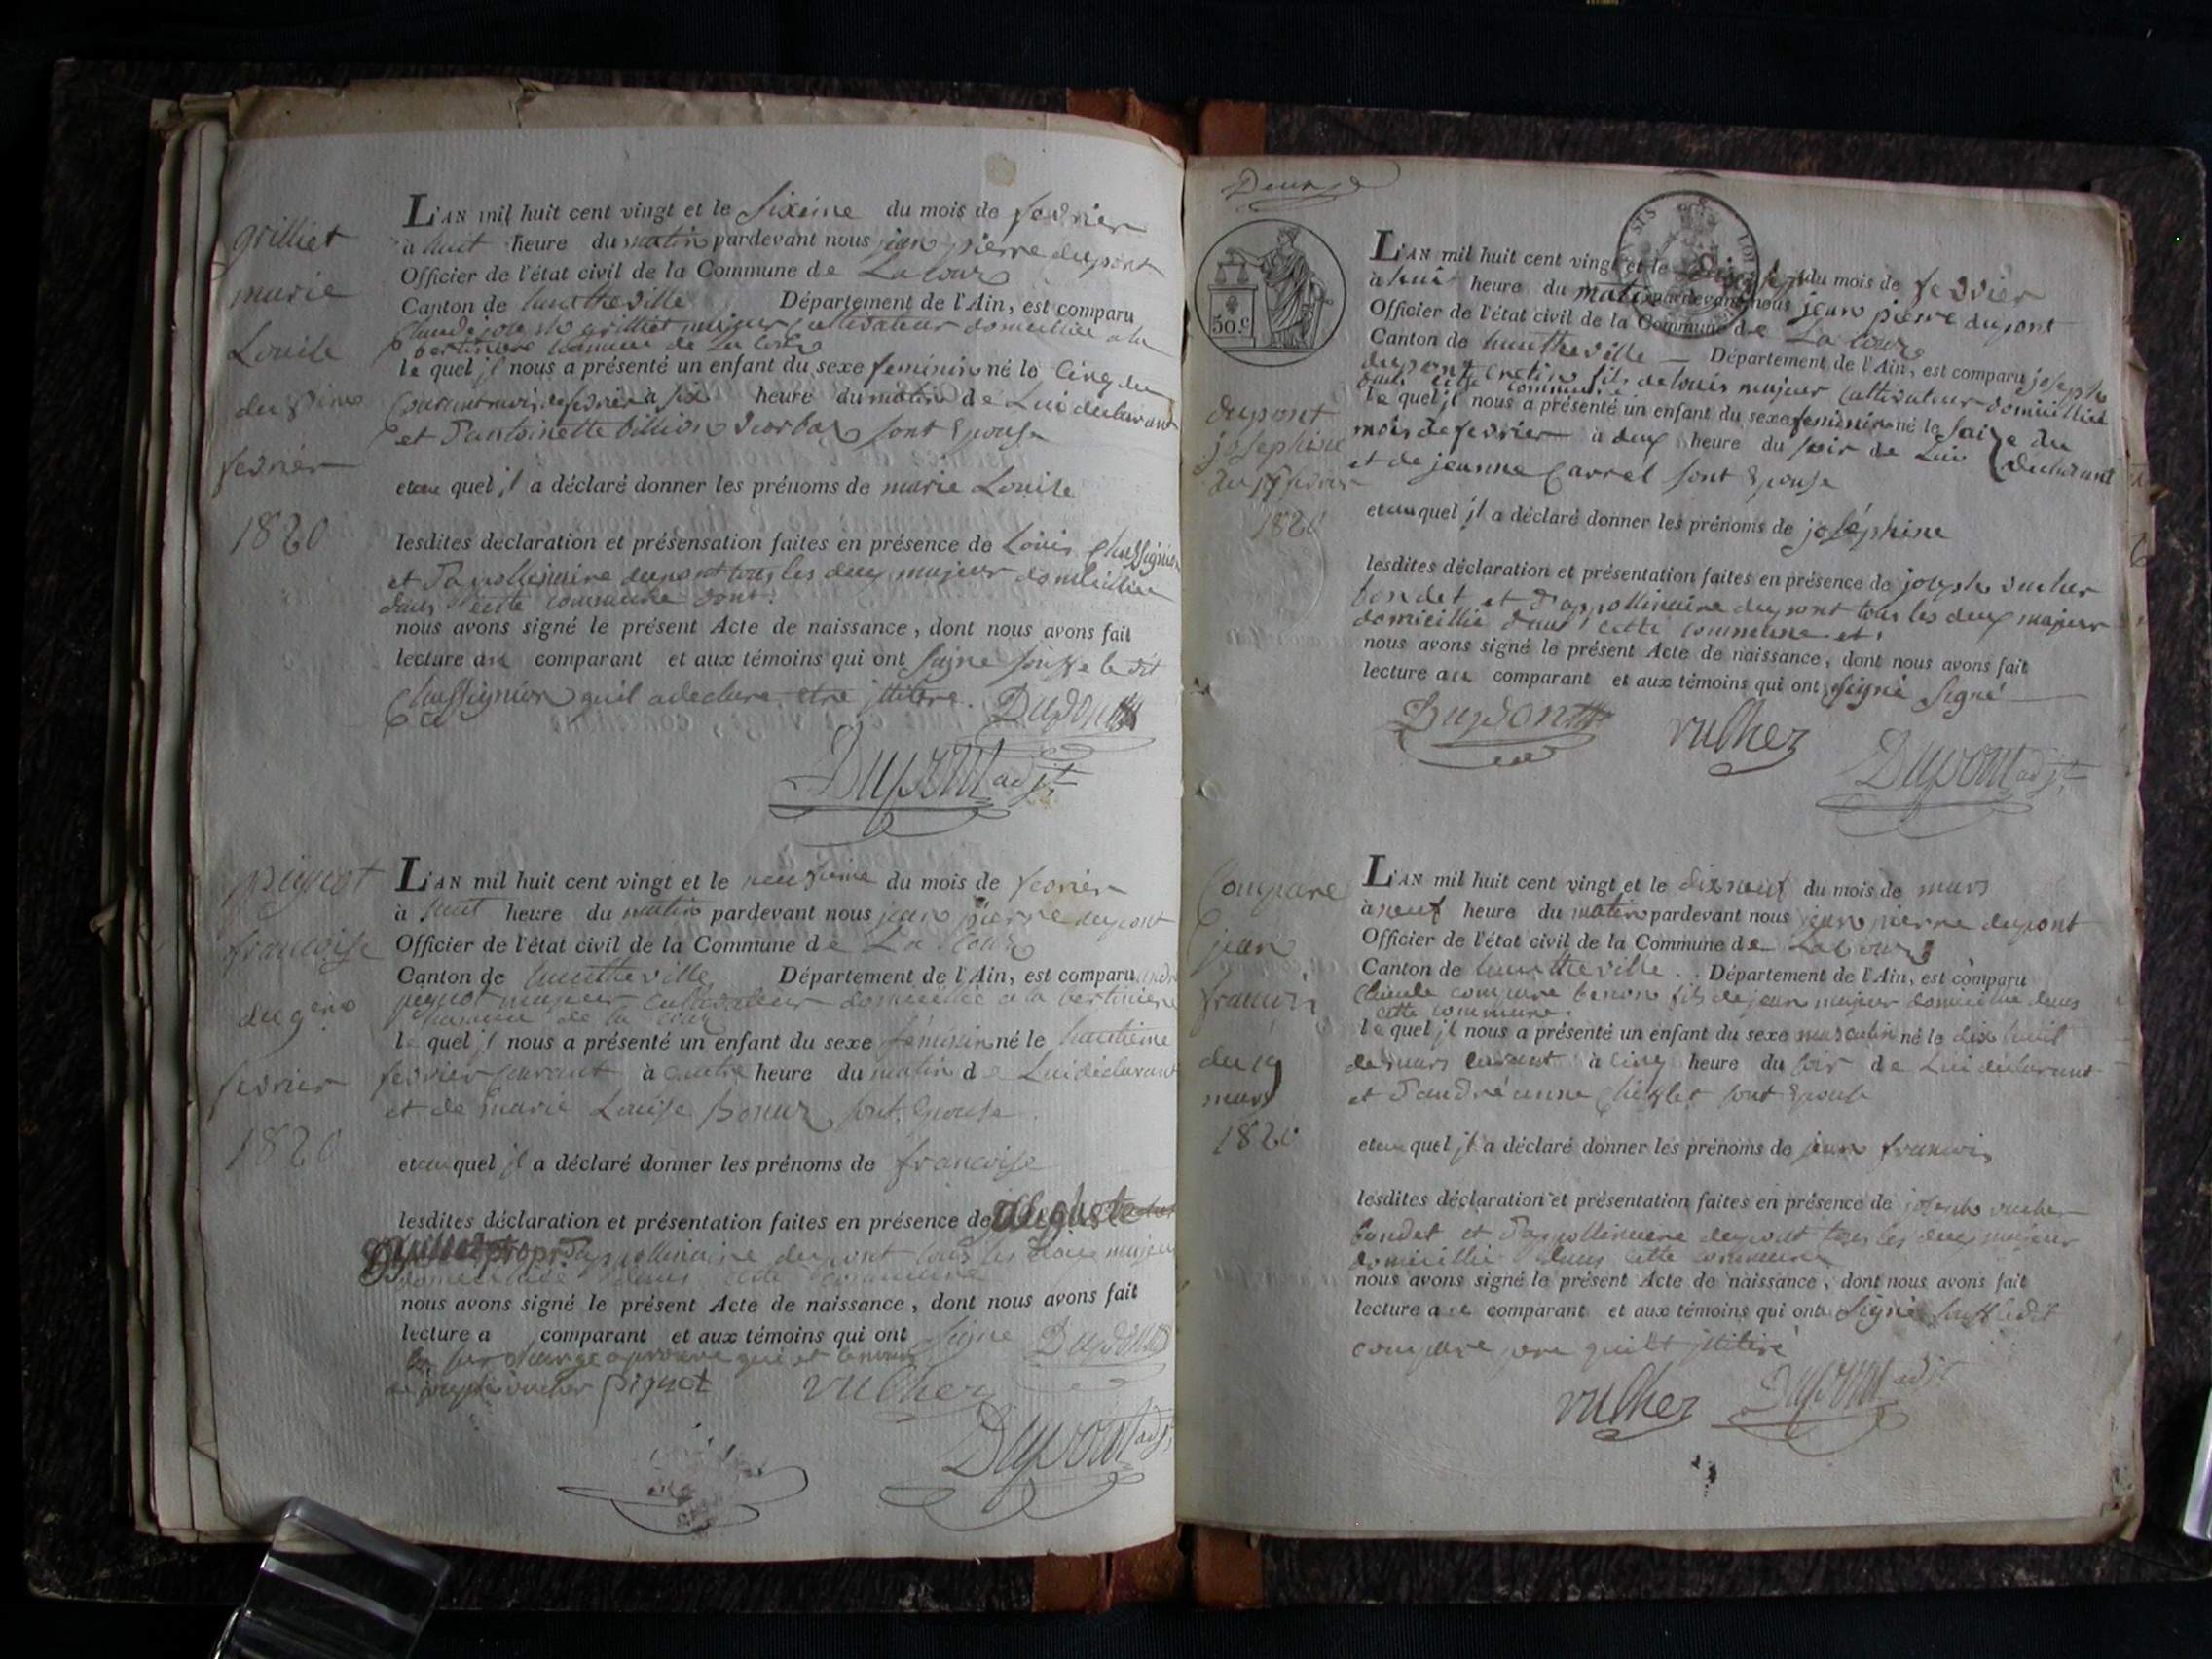 grilliet
marie
Louise
du 6ème
fevrier
1820
L'AN mil huit cent vingt et le Sixième du mois de fevrier
à huit heure du matin pardevant nous jean pierre dupont
Officier de l'état civil de la Commune de La Cour
Canton de hautheville Département de l'Ain, est comparu
grilliet majeur cultivateur domicillié a la
commune de La Cour
le quel jl nous a présenté un enfant du sexe feminin né le Cinq du
Courant mois de fevrier à six heure du matin de Lui declarant
et d'antoinette billion sont Epouse
et au quel jl a déclaré donner les prénoms de marie Louise
lesdites déclaration et présensation faites en présence de Louis
et d'apollinaire dupont tous les deux majeur domicillié
dans cette commune dont
nous avons signé le présent Acte de naissance, dont nous avons fait
lecture au comparant et aux témoins qui ont signe le dit
qu'il a declare etre jllitere. Dupont
Dupont adjt
piquot
francoise
du 9ème
fevrier
1820
L'AN mil huit cent vingt et le neufieme du mois de fevrier
à huit heure du matin pardevant nous jean pierre dupont
Officier de l'état civil de la Commune de La Cour
Canton de hautheville Département de l'Ain, est comparu
majeur cultivateur domicillié a la
de la cour
le quel jl nous a présenté un enfant du sexe féminin né le huitieme
fevrier courant à quatre heure du matin de Lui déclarant
et de marie Louise sont Epouse
et au quel jl a déclaré donner les prénoms de francoise
lesdites déclaration et présentation faites en présence de
d'apollinaire dupont tous les deux majeur
dans cette commune
nous avons signé le présent Acte de naissance, dont nous avons fait
lecture a comparant et aux témoins qui ont signe Dupont
piquot vucher
Dupont adjt
50 c
dupont
joséphine
du 17 fevrier
1820
L'AN mil huit cent vingt et le du mois de fevrier
à huit heure du matin pardevant nous jean pierre dupont
Officier de l'état civil de la Commune de La Cour
Canton de hautheville Département de l'Ain, est comparu joseph
dupont cretin fils de louis majeur cultivateur domicillié
dans cette commune
le quel jl nous a présenté un enfant du sexe feminin né le saize du
mois de fevrier à deux heure du soir de Lui declarant
et de jeanne Carrel sont Epouse
et au quel jl a déclaré donner les prénoms de joséphine
lesdites déclaration et présentation faites en présence de joseph vucher
bondet et d'appollinaire dupont tous les deux majeur
domicillié dans cette commune et
nous avons signé le présent Acte de naissance, dont nous avons fait
lecture au comparant et aux témoins qui ont signé
Dupont vucher Dupont adjt
Compare
jean
francois
du 19
mars
1820
L'AN mil huit cent vingt et le dix neuf du mois de mars
à neuf heure du matin pardevant nous jean pierre dupont
Officier de l'état civil de la Commune de La Cour
Canton de hautheville Département de l'Ain, est comparu
Claude compare fils de jean majeur domicillié dans
cette commune.
le quel jl nous a présenté un enfant du sexe masculin né le dix huit
de mars courant à cinq heure du soir de Lui déclarant
et d'andréanne sont Epouse
et au quel jl a déclaré donner les prénoms de jean francois
lesdites déclaration et présentation faites en présence de joseph vucher
bondet et d'apollinaire dupont tous les deux majeur
domicillié dans cette commune
nous avons signé le présent Acte de naissance, dont nous avons fait
lecture au comparant et aux témoins qui ont signé ledit
compare jllitere
vucher Dupont adjt